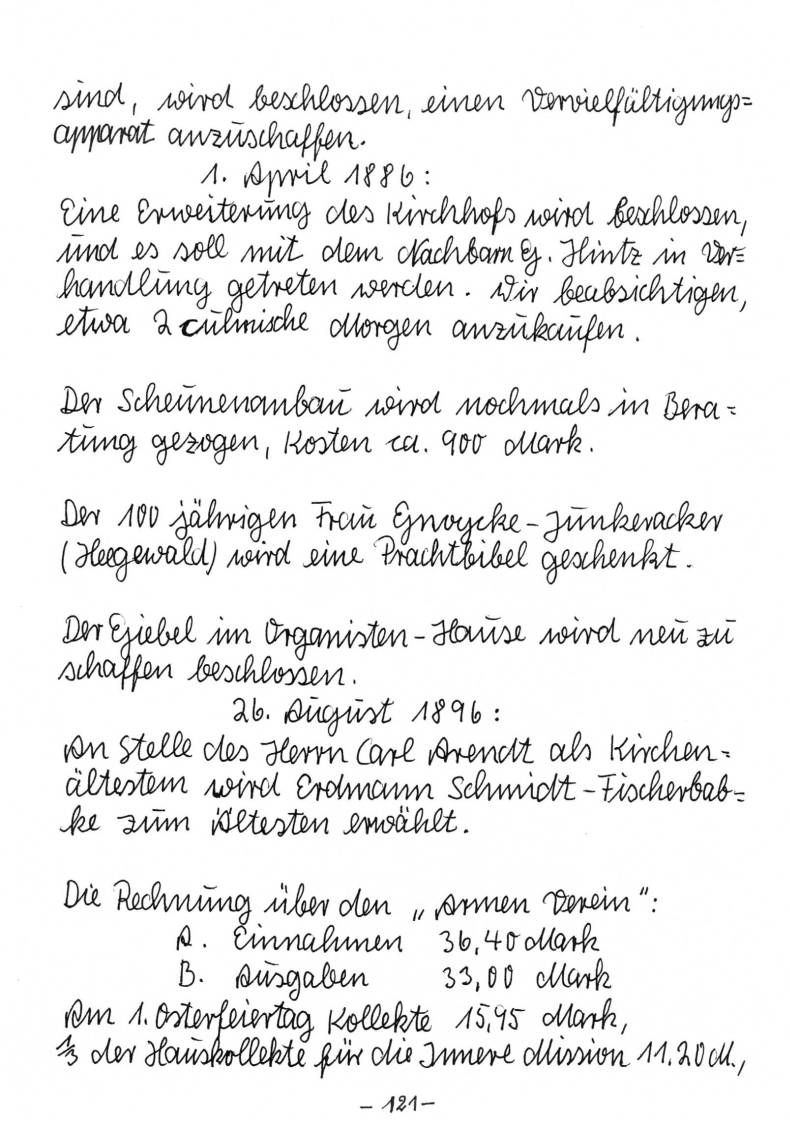 sind, wird beschlossen, einen Vervielfältigungs=
apparat anzuschaffen.
1. April 1886:
Eine Erweiterung des Kirchhofs wird beschlossen,
und es soll mit dem Nachbarn G. Hintz in Ver=
handlung getreten werden. Wir beabsichtigen,
etwa 2 culmische Morgen anzukaufen.
Der Scheunenanbau wird nochmals in Bera=
tung gezogen, Kosten ca. 900 Mark.
Der 100 jährigen Frau Gnoycke-Junkeracker
(Heegewald) wird eine Prachtbibel geschenkt.
Der Giebel im Organisten-Hause wird neu zu
schaffen beschlossen.
26. August 1896:
An Stelle des Herrn Carl Arendt als Kirchen=
ältestem wird Erdmann Schmidt-Fischerbab=
ke zum Ältesten erwählt.
Die Rechnung über den „Armen Verein":
A. Einnahmen 36,40 Mark
B. Ausgaben 33,00 Mark
Am 1. Osterfeiertag Kollekte 15,95 Mark,
1/3 der Hauskollekte für die Innere Mission 11.20 M.,
-121-